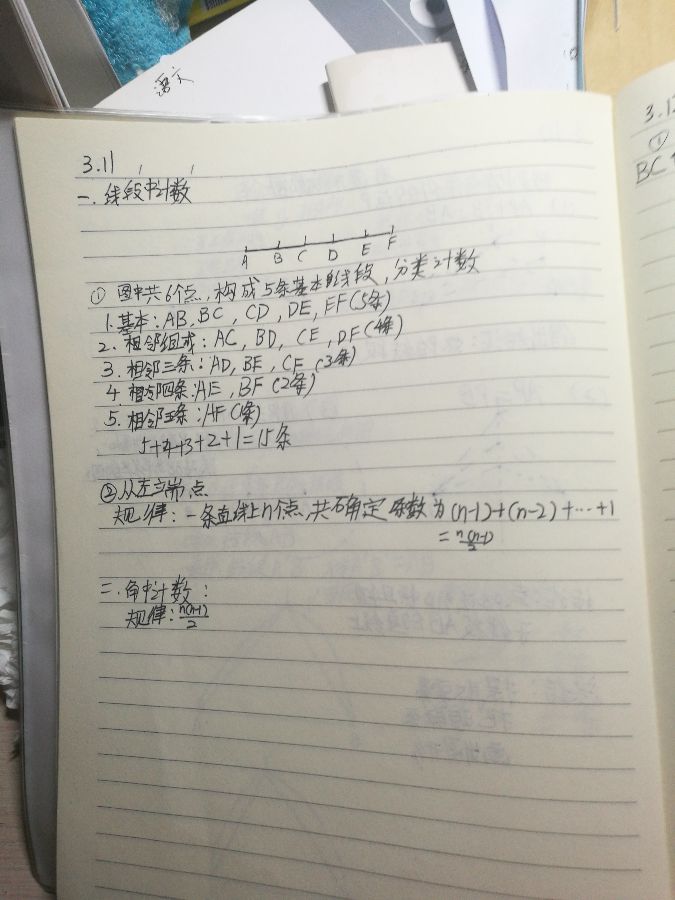 语文
3.11
一.线段中计数
A B C D E F
① 图中共6个点,构成5条基本的线段,分类计数
1.基本:AB,BC,CD,DE,EF(5条)
2.相邻组成:AC,BD,CE,DF(4条)
3.相邻三条:AD,BE,CF(3条)
4.相邻四条:AE,BF(2条)
5.相邻五条:AF(1条)
5+4+3+2+1=15条
②从左端点
规律:一条直线上n个点,共确定 条数为(n-1)+(n-2)+…+1
=n(n-1)/2
二.角中计数:
规律:n(n-1)/2
3.12
①
BC